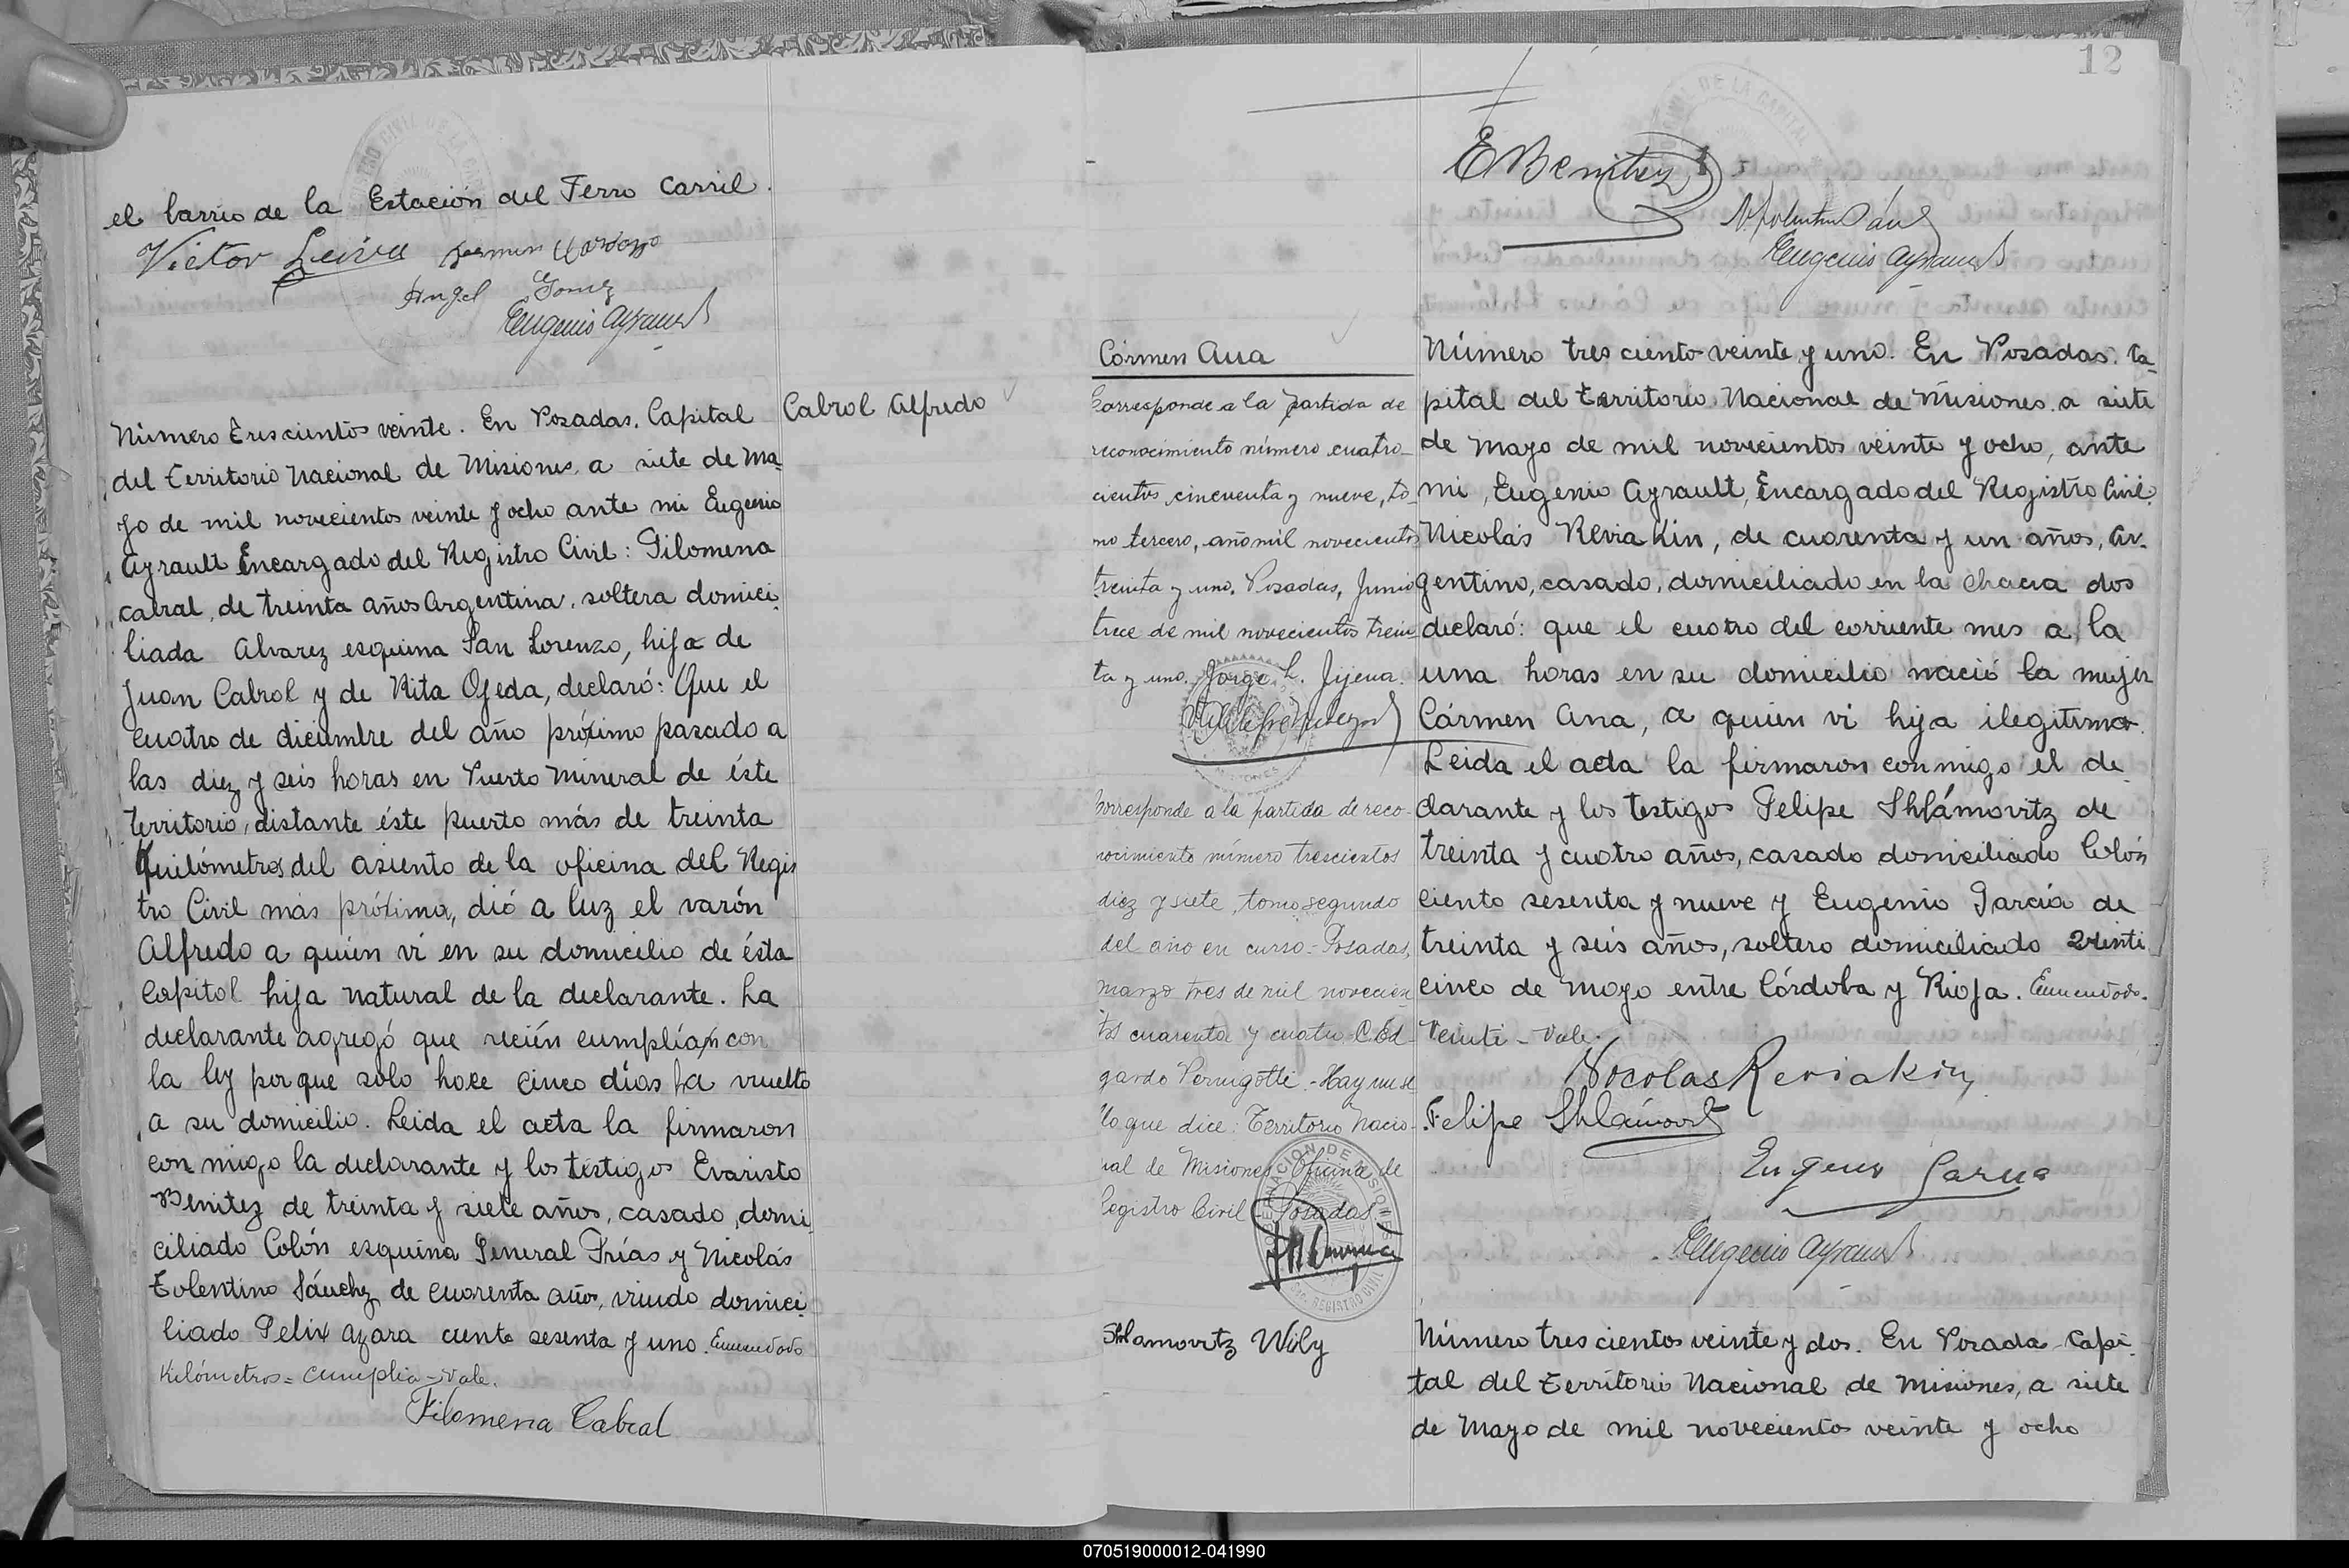 el barrio de la Estación del Ferro Carril.
Victor Leiva
Angel Gomez
Eugenio Ayrault
Cabrol Alfredo
Número trescientos veinte. En Posadas, Capital
del Territorio Nacional de Misiones, a siete de Ma
yo de mil novecientos veinte y ocho ante mi Eugenio
Ayrault Encargado del Registro Civil: Filomena
cabral, de treinta años Argentina, soltera domici
liada Alvarez esquina San Lorenzo, hija de
Juan Cabrol y de Rita Ojeda, declaró: Que el
cuatro de diciembre del año próximo pasado a
las diez y seis horas en Puerto Mineral de éste
Territorio, distante éste puerto más de treinta
Kuilómetros del asiento de la oficina del Regis
tro Civil más próxima, dió a luz el varón
Alfredo a quién ví en su domicilio de ésta
Capitol hija natural de la declarante. La
declarante agregó que recién cumplía con
la ley porque solo hace cinco días ha vuelto
a su domicilio. Leida el acta la firmaron
con migo la declarante y los testigos Evaristo
Benitez de treinta y siete años, casado, domi
ciliado Colón esquina General Frías y Nicolás
Tolentino Sánchez de cuarenta años, viudo domici
liado Felix Azara ciento sesenta y uno. Enmendado
Kilómetros = cumplia - Vale.
Filomena Cabral
12
E Benitez
N. Tolentino Sánchez
Eugenio Ayrault
Cármen Ana
Corresponde a la partida de
reconocimiento número cuatro-
cientos cincuenta y nueve, to-
mo tercero, año mil novecientos
treinta y uno. Posadas, Junio
trece de mil novecientos trein
ta y uno. Jorge L. Jijena.
Número tres ciento veinte y uno. En Posadas. Ca-
pital del Territorio Nacional de Misiones, a siete
de Mayo de mil novecientos veinte y ocho, ante
mi, Eugenio Ayrault, Encargado del Registro Civil
Nicolás Reviakin, de cuarenta y un años, Ar-
gentino, casado, domiciliado en la chacra dos
declaró: que el cuotro del corriente mes a la
una horas en su domicilio nació la mujer
Cármen Ana, a quién ví hija ilegitima.
Leida el acta la firmaron conmigo el de
clarante y los testigos Felipe Shlámovitz de
treinta y cuatro años, casado domiciliado Colón
ciento sesenta y nueve y Eugenio García de
treinta y seis años, soltero domiciliado Veinti
cinco de Mayo entre Córdoba y Rioja. Enmendado.
Veinti - Vale.
Corresponde a la partida de reco-
nocimiento número trescientos
diez y siete, tomo segundo
del año en curso - Posadas,
marzo tres de mil novecien
tos cuarenta y cuatro C. Ed-
gardo Pernigotti. - Hay un se
llo que dice: Territorio Nacio-
nal de Misiones Oficina de
Registro Civil Posadas
GOBERNACION DE MISIONES
REGISTRO CIVIL
Nocolas Reviakin
Felipe Shlámovitz
Eugenio Garcia
Eugenio Ayrault
Shlamovitz Wily
Número tres cientos veinte y dos. En Posada Capi
tal del Territorio Nacional de Misiones, a siete
de Mayo de mil novecientos veinte y ocho
070519000012-041990